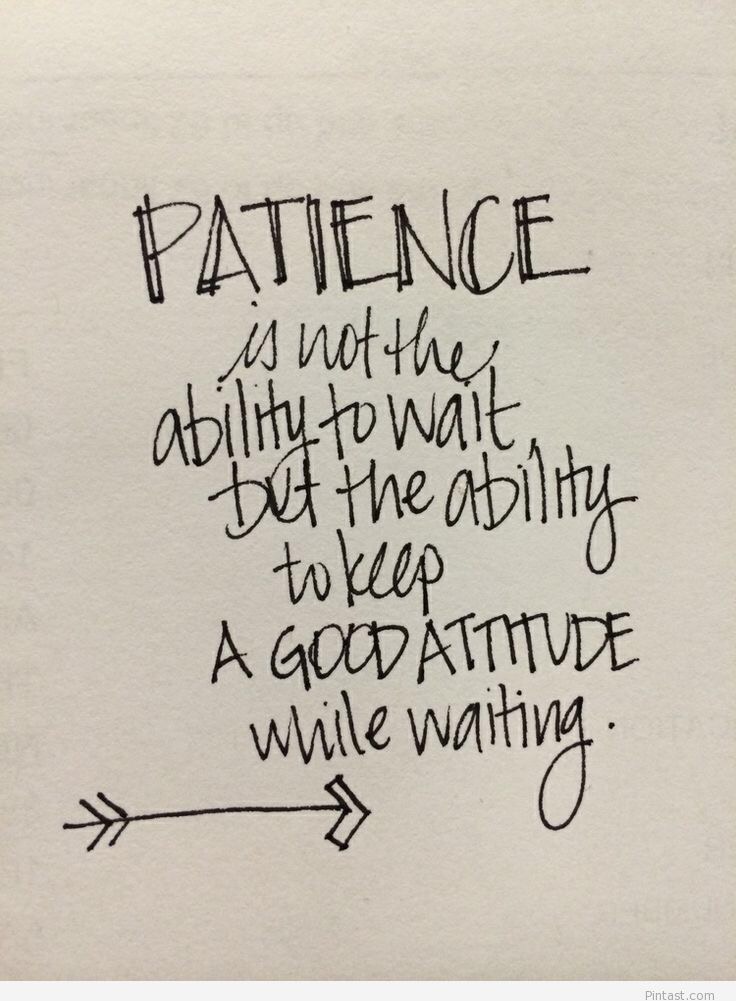 PATIENCE
is not the
ability to wait
but the ability
to keep
A GOOD ATTITUDE
while waiting.
Pintast.com